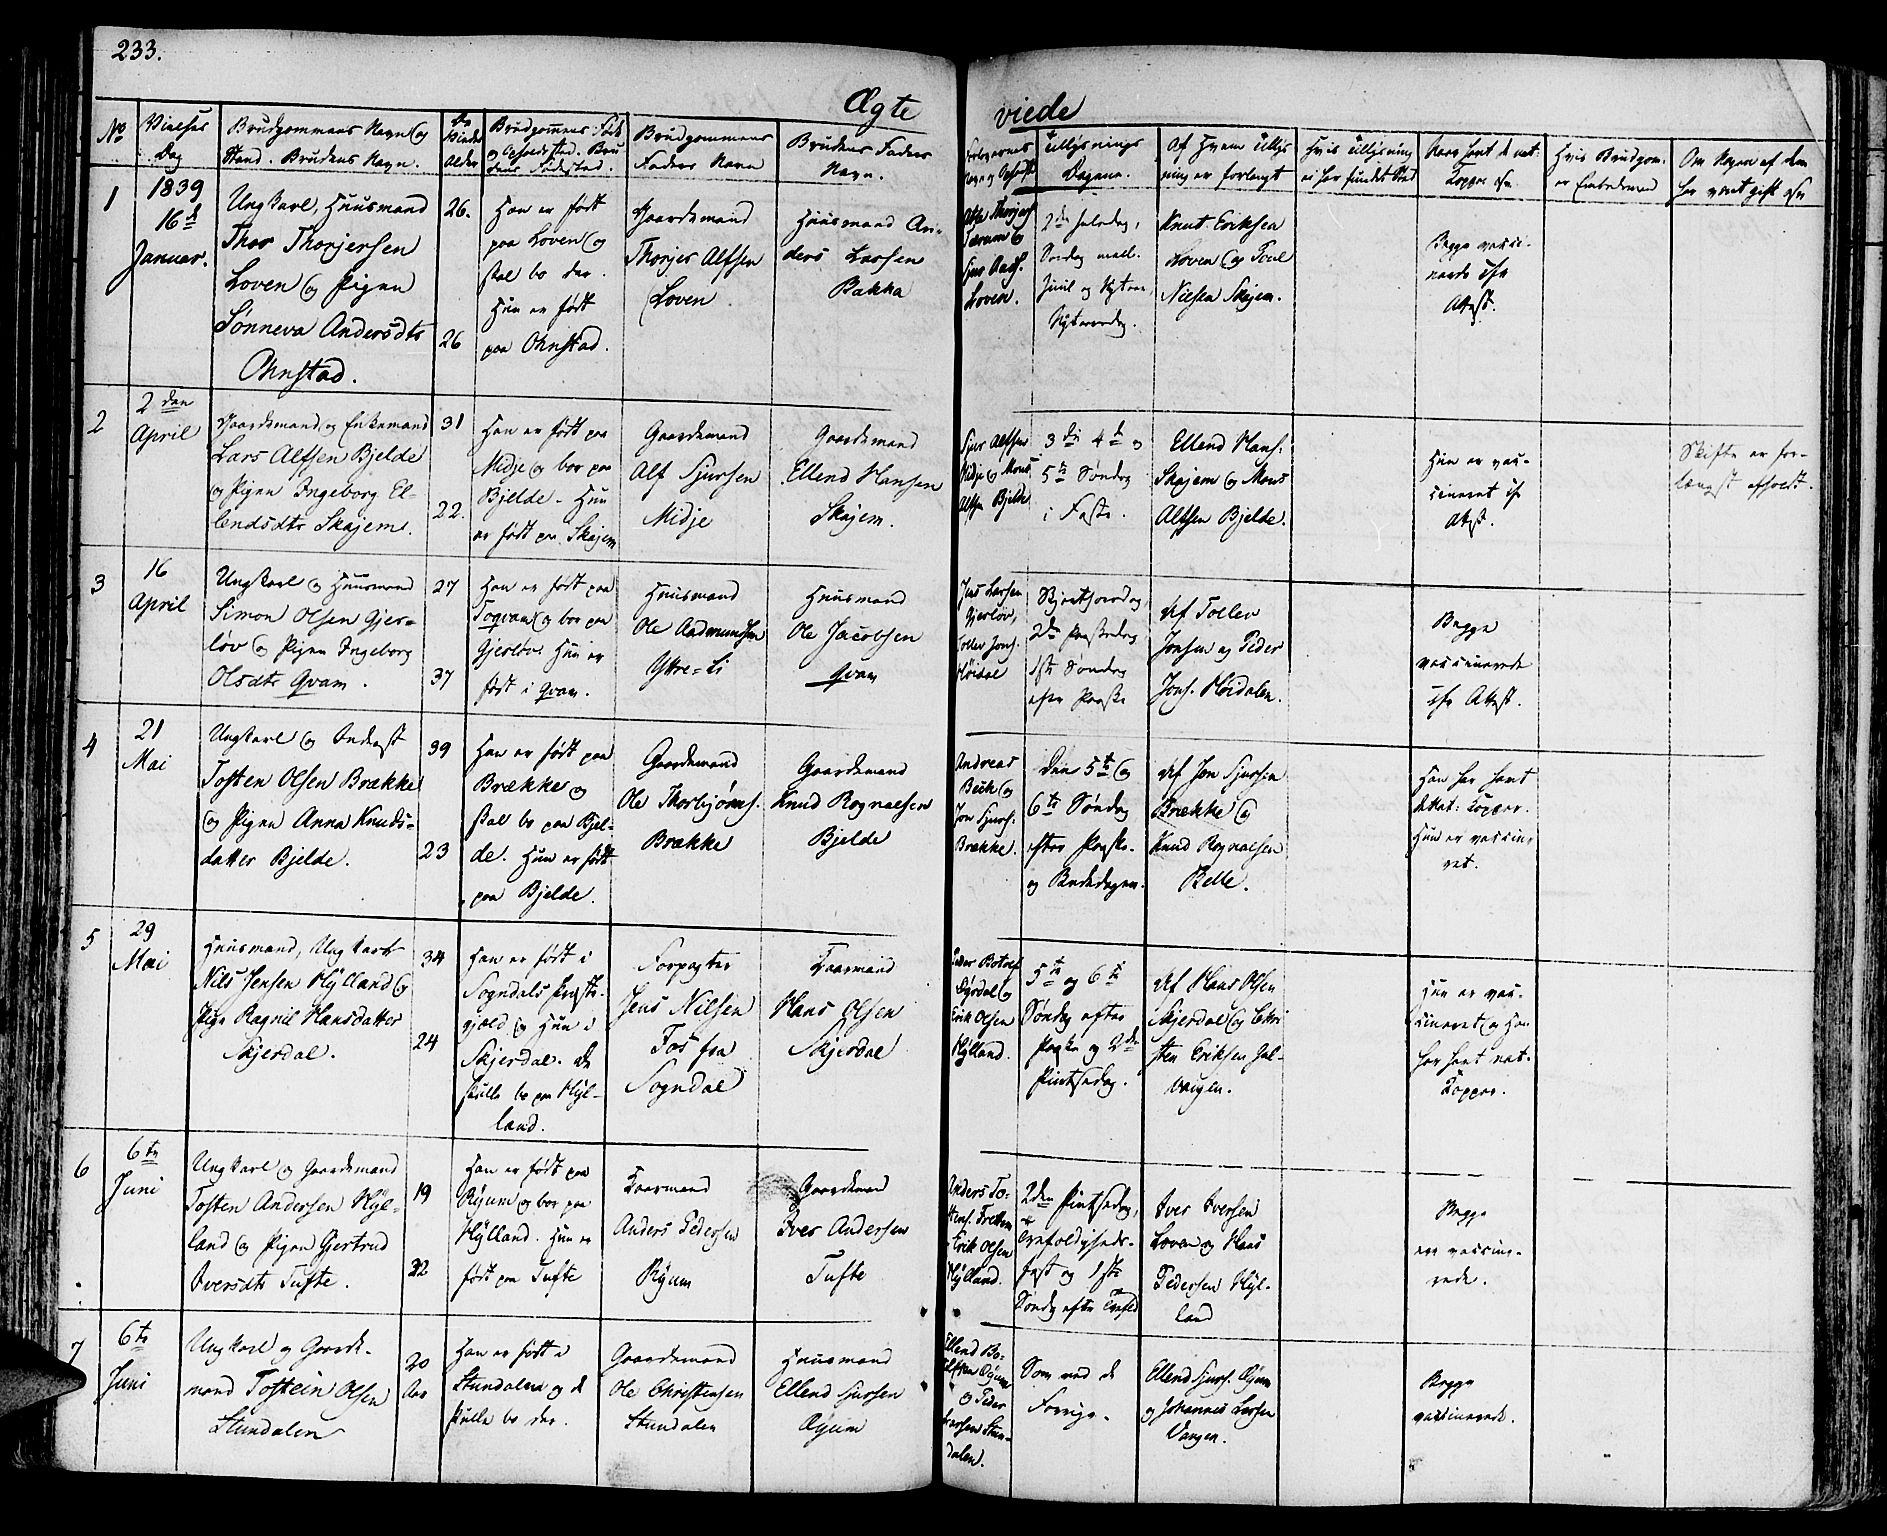 233.
Ægte viede
No
Vielses Dag
Brudgommens Navn og Stand. Brudens Navn.
De Viedes Alder
Brudgommens Føde og Opholdsted. Brudens Fødested.
Brudgommens Faders Navn
Brudens Faders Navn.
Forlovernes Navn og Opholdst
Tillysnings Dagene.
Af Hvem Tillysning er forlangt
Hvis Tillysning er her fundet Sted
Have havt de nat: Kopper ell
Hvis Brudgom. er Embedsmand
Om Nogen af dem har været gift ell
1
1839
16 d
Januar.
Ungkarl, Huusmand
Thor Thorjersen
Loven og Pigen
Sønneva Andersdtr
Ohnstad.
26.
26
Han er født
paa Loven og
skal bo der.
Hun er født
paa Ohnstad.
Gaardmand
Thorjer Alfsen
Loven.
Huusmand An-
ders Larsen
Bakka
Loven.
2den Juledag,
Søndag mell.
Juul og Nytaar,
Nytaarsdag.
Knut Eriksen
Loven og Poul
Nielsen Skajem.
Begge vacci-
nerede ifø
Attest.
2
2 den
April
Gaardmand og Enkemand
Lars Alfsen Bjelde
og Pigen Ingeborg El-
lendsdtr Skajem.
31
22.
Han er født paa
Midje og bor paa
Bjelde. Hun
er født paa Skajem
Gaardmand
Alf Sjursen
Midje
Gaardmand
Ellend Hansen
Skajem.
Sjur Alfsen
Midje og Mons
Alfsen Bjelde
3 die 4 d og
5 te Søndag
i Faste.
Ellend Hans.
Skajem og Mons
Alfsen Bjelde.
Hun er vac-
cineret if
Attest.
Skifte er for-
længst afholdt.
3
16
April
Ungkarl og Huusmand
Simon Olsen Gjer-
løv og Pigen Ingeborg
Olsdtr Qvam.
27
37
Han er født paa
Togvam og bor paa
Gjerløv. Hun er
født i Qvam.
Huusmand
Ole Aadmundsen
Ytre-Li
Huusmand
Ole Jacobsen
Qvam
Jens Larsen
Gjerløv,
Tollev Jons.
Høidal
Skjertorsdag
2den Paaskedag
1ste Søndag
efter Paaske
Af Tollev
Jonsen og Peder
Jons. Høidalen.
Begge
vaccinerede
ifø Attest.
4
21
Mai
Ungkarl og Inderst
Tosten Olsen Brække
og Pigen Anna Knuds-
datter Bjelde.
39
23
Han er født paa
Brække og
skal bo paa Bjel-
de. Hun er født
paa Bjelde.
Gaardmand
Ole Thorbjørns.
Brække
Gaardmand
Knud Rognalsen
Bjelde
Andreas
Beck og
Jon Sjurs.
Brække.
Den 5 te og
6 te Søndag
efter Paaske.
og Bededagen.
Af Jon Sjursen
Brække og
Knud Rognalsen
Belle.
Han har havt
de nat: Kopper.
Hun er vaccine-
ret.
5
29
Mai
Huusmand, Ungkarl
Nils Jensen Hylland og
Pigen Ragnil Hansdatter
Skjerdal.
34
24
Han er født i
Sogndals Præste-
gjeld og Hun i
Skjerdal. De
skulle bo paa Hyl-
land.
Forpagter
Jens Nilsen
Fos fra
Sogndal
Kaarmand
Hans Olsen
Skjerdal
Erik Olsen
Hylland.
5 te og 6 te
Søndag efter
Paaske og 2den
Pintsedag.
Af Hans Olsen
Skjerdal og Chri
sten Eriksen Gal-
vangen.
Hun er vac-
cineret og Han
har havt nat.
Kopper.
6
6 te
Juni
Ungkarl og Gaardmand
Tosten Andersen Hyl-
land og Pigen Gjertrud
Iversdtr Tufte.
19
22
Han er født paa
Ryum og bor paa
Hylland. Hun er
født paa Tufte
Kaarmand
Anders Pedersen
Ryum
Gaardmand
Iver Andersen
Tufte
Anders To-
stens. Frettem
Erik Olsen
Hylland.
2den Pintsedag,
Trefoldigheds-
fest og 1ste
Søndag efter Trefold
Iver Iversen
Loven og Hans
Pedersen Hyl-
land
Begge
ere vaccine-
rede.
7
6 te
Juni
Ungkarl og Gaard-
mand Tostein Olsen
Stundalen
20
Aar
Han er født i
Stundalen og de
skulle bo der.
Gaardmand
Ole Christensen
Stundalen
Huusmand
Ellend Sjursen
Øyum
Ellend Bo-
Øyum
og Peder
Larsen Stun-
dalen.
Som ved de
Forrige.
Ellend Sjurs. Øyum
og Johannes Larsen
Vangen.
Begge
vaccinerede.